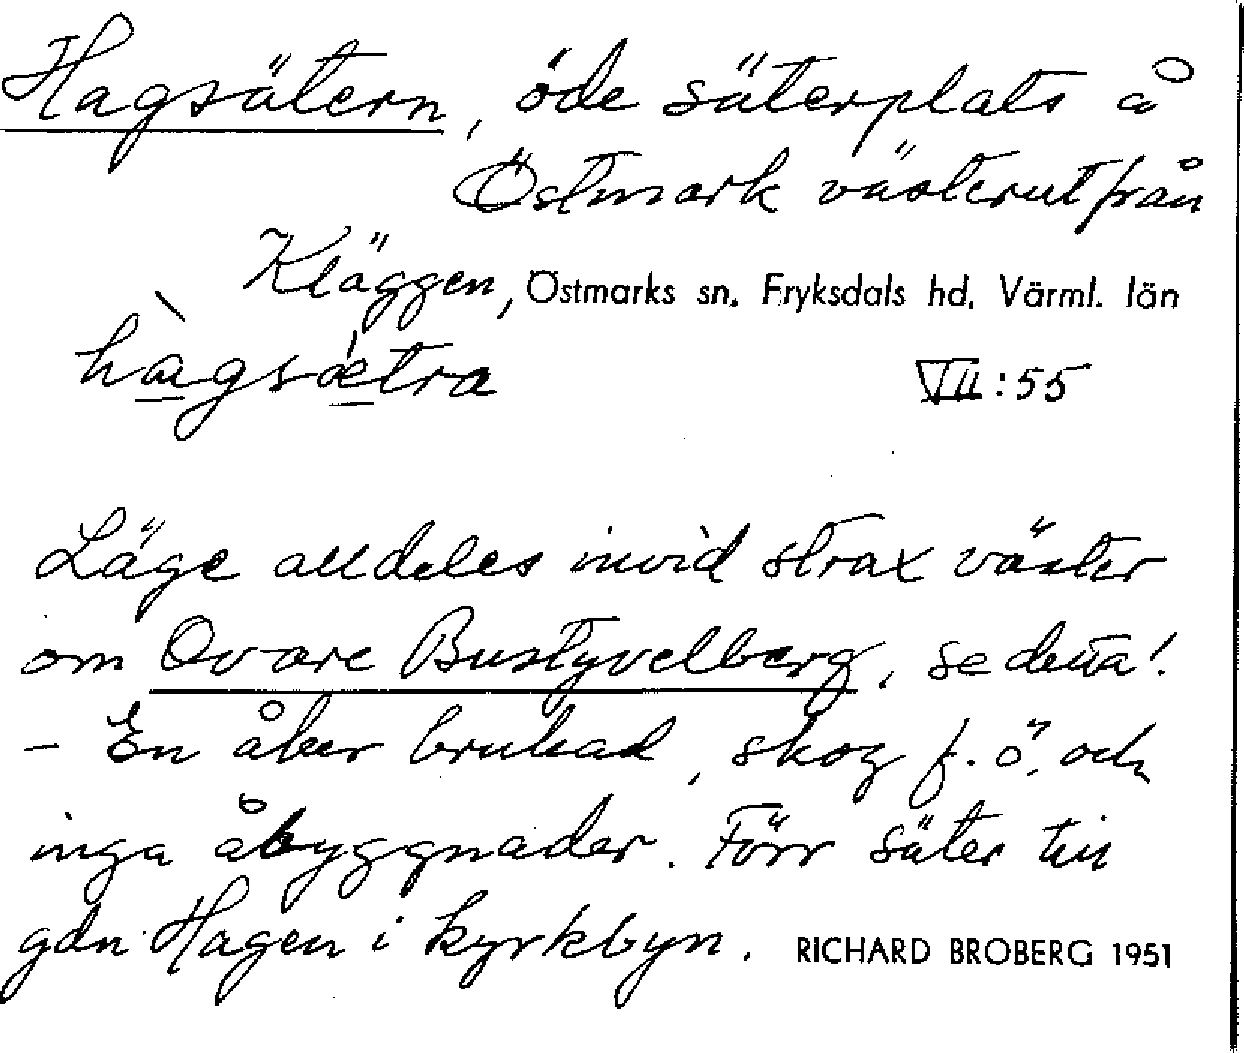 Hagsätern, öde säterplats å
Östmark västerut från
Kläggen, Östmarks sn. Fryksdals hd. Värml. län
hàgsǽtra VII:55
Läge alldeles invid strax väster
om Ovare Bustyvelberg, se detta!
- En åker brukad, skog f. ö. och
inga åbyggnader. Förr säter till
gdn Hagen i kyrkbyn. RICHARD BROBERG 1951